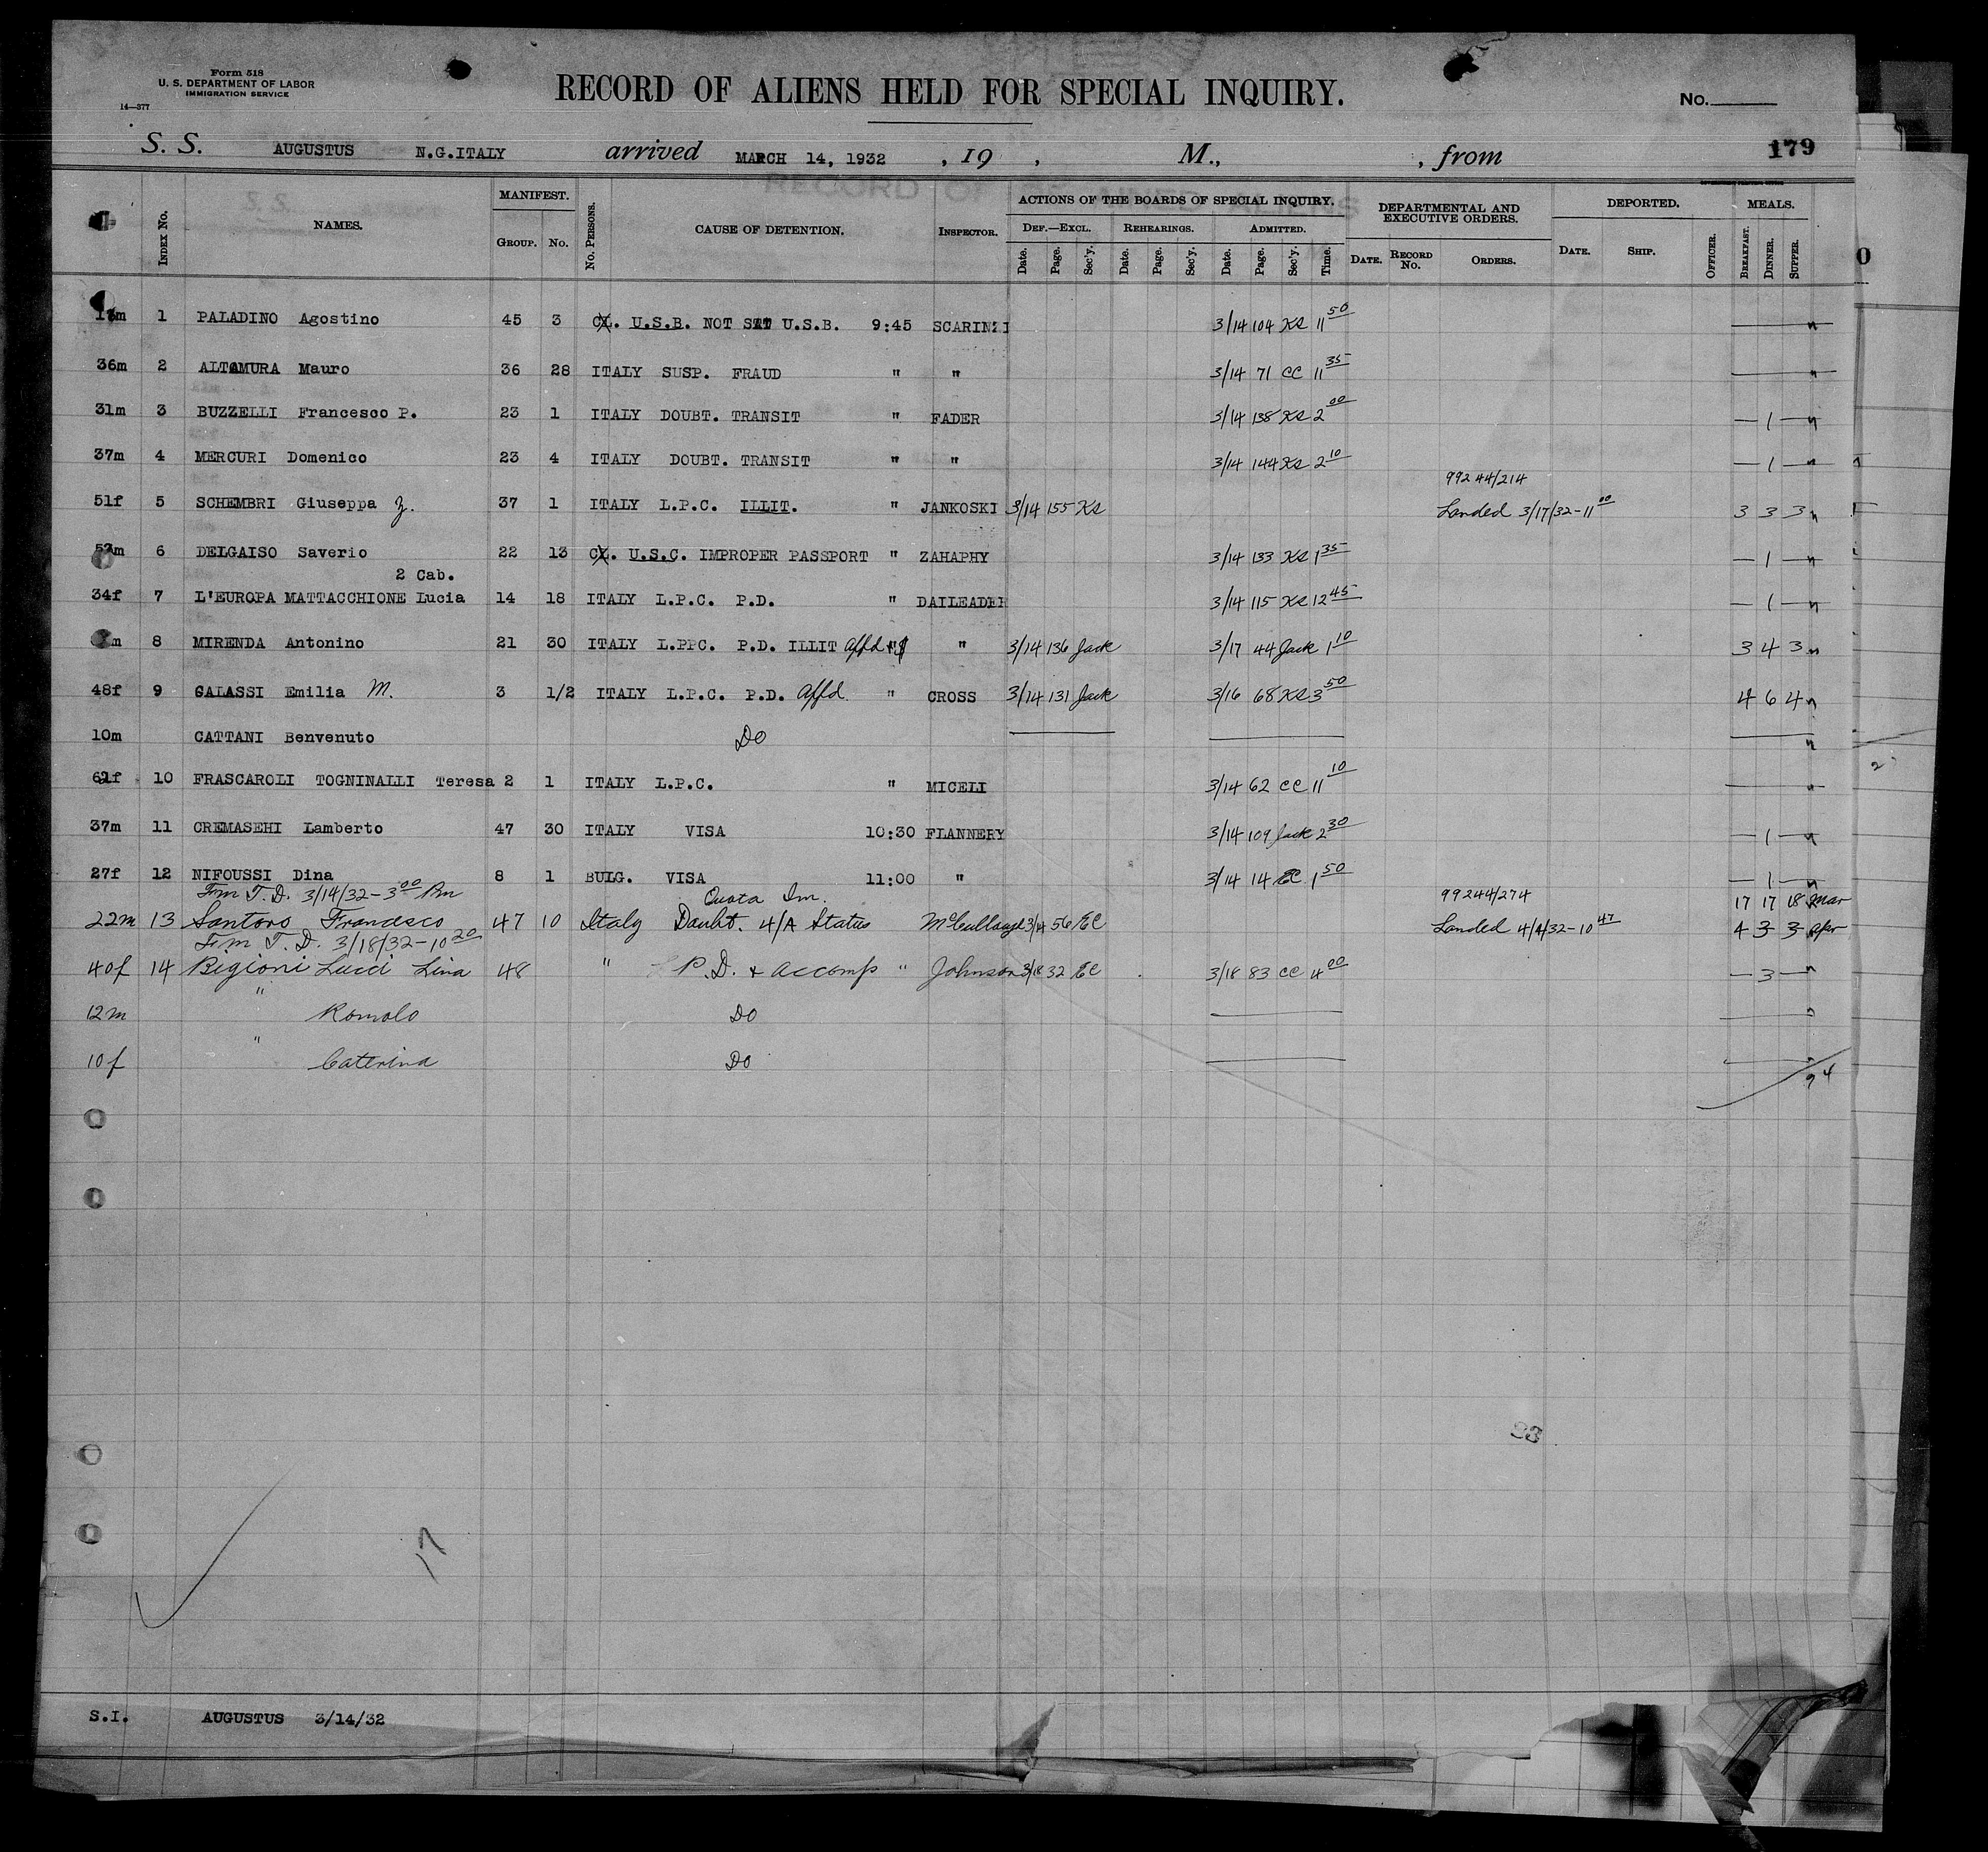 Form 518
U. S. DEPARTMENT OF LABOR
IMMIGRATION SERVICE
14—377
RECORD OF ALIENS HELD FOR SPECIAL INQUIRY.
No.
179
S. S. AUGUSTUS N.G.ITALY arrived MARCH 14, 1932 , 19 , M., , from
INDEX No. NAMES. MANIFEST. GROUP. No. No. PERSONS. CAUSE OF DETENTION. INSPECTOR. ACTIONS OF THE BOARDS OF SPECIAL INQUIRY. DEF.—EXCL. Date. Page. Sec'y. REHEARINGS. Date. Page. Sec'y. ADMITTED. Date. Page. Sec'y. Time. DEPARTMENTAL AND EXECUTIVE ORDERS. DATE. RECORD No. ORDERS. DEPORTED. DATE. SHIP. OFFICER. MEALS. BREAKFAST. DINNER. SUPPER.
1 PALADINO Agostino 45 3 U.S.B. NOT U.S.B. 9:45 SCARINZI 3/14 104 KS 11 50
36m 2 ALTAMURA Mauro 36 28 ITALY SUSP. FRAUD " " 3/14 71 CC 11 35
31m 3 BUZZELLI Francesco P. 23 1 ITALY DOUBT. TRANSIT " FADER 3/14 138 KS 2 00 — 1 —
37m 4 MERCURI Domenico 23 4 ITALY DOUBT. TRANSIT " " 3/14 144 KS 2 10 — 1 —
99244/214
51f 5 SCHEMBRI Giuseppa Z. 37 1 ITALY L.P.C. ILLIT. " JANKOSKI 3/14 155 KS Landed 3/17/32-11 00 3 3 3
6 DELGAISO Saverio 22 13 U.S.C. IMPROPER PASSPORT " ZAHAPHY 3/14 133 KS 1 35 — 1 —
2 Cab.
34f 7 L'EUROPA MATTACCHIONE Lucia 14 18 ITALY L.P.C. P.D. " DAILEADER 3/14 115 KS 12 45 — 1 —
8 MIRENDA Antonino 21 30 ITALY L.PPC. P.D. ILLIT Affd " " 3/14 136 Jack 3/17 44 Jack 1 10 3 4 3
48f 9 GALASSI Emilia M. 3 1/2 ITALY L.P.C. P.D. Affd. " CROSS 3/14 131 Jack 3/16 68 KS 3 50 4 6 4
10m CATTANI Benvenuto DO
10 FRASCAROLI TOGNINALLI Teresa 2 1 ITALY L.P.C. " MICELI 3/14 62 CC 11 10
37m 11 CREMASEHI Lamberto 47 30 ITALY VISA 10:30 FLANNERY 3/14 109 Jack 2 30 — 1 —
27f 12 NIFOUSSI Dina 8 1 BULG. VISA 11:00 " 3/14 14 EC 1 50 — 1 —
Frm T.D. 3/14/32-3 00 Pm Quota Im. 99244/274 17 17 18 Mar
22m 13 Santoro Francesco 47 10 Italy Doubt. 4/A Status McCullough 3/14 56 EC Landed 4/4/32-10 47 4 3 3 Apr
Frm T.D. 3/18/32-10 20
40f 14 Bigioni Lucci Lina 48 " P.D. + accomp " Johnson 3/18 32 EC 3/18 83 CC 4 00 — 3 —
12m " Romolo DO
10f " Caterina DO
94
17
S.I. AUGUSTUS 3/14/32